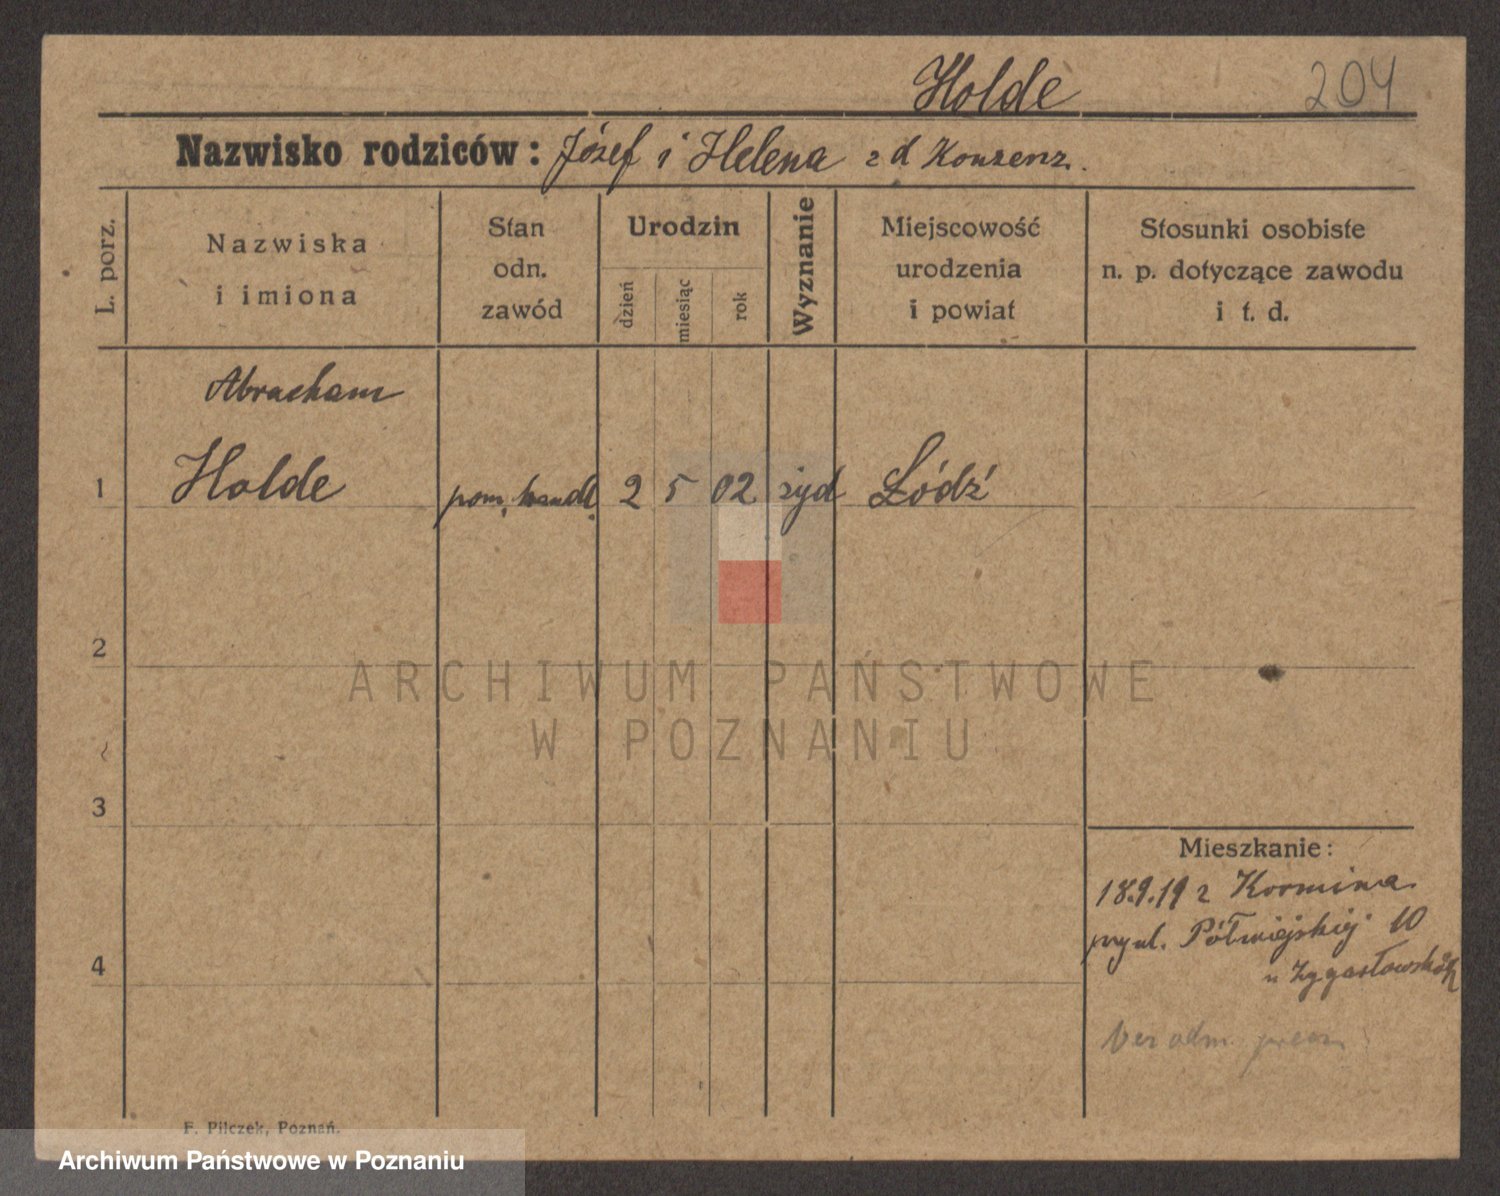 Holde 204
Nazwisko rodziców: Józef i Helena z d Konzenz.
L. porz.
Nazwiska
i imiona
Stan
odn.
zawód
Urodzin
dzień
miesiąc
rok
Wyznanie
Miejscowość
urodzenia
i powiat
Stosunki osobiste
n. p. dotyczące zawodu
i t. d.
Abracham
1 Holde pom. handl. 2 5 02 żyd Łódź
2
3
4
ARCHIWUM PAŃSTWOWE
W POZNANIU
Mieszkanie:
18.9.19 z Kormina
przy ul. Półwiejskiej 10
u
F. Pilczek, Poznań.
Archiwum Państwowe w Poznaniu